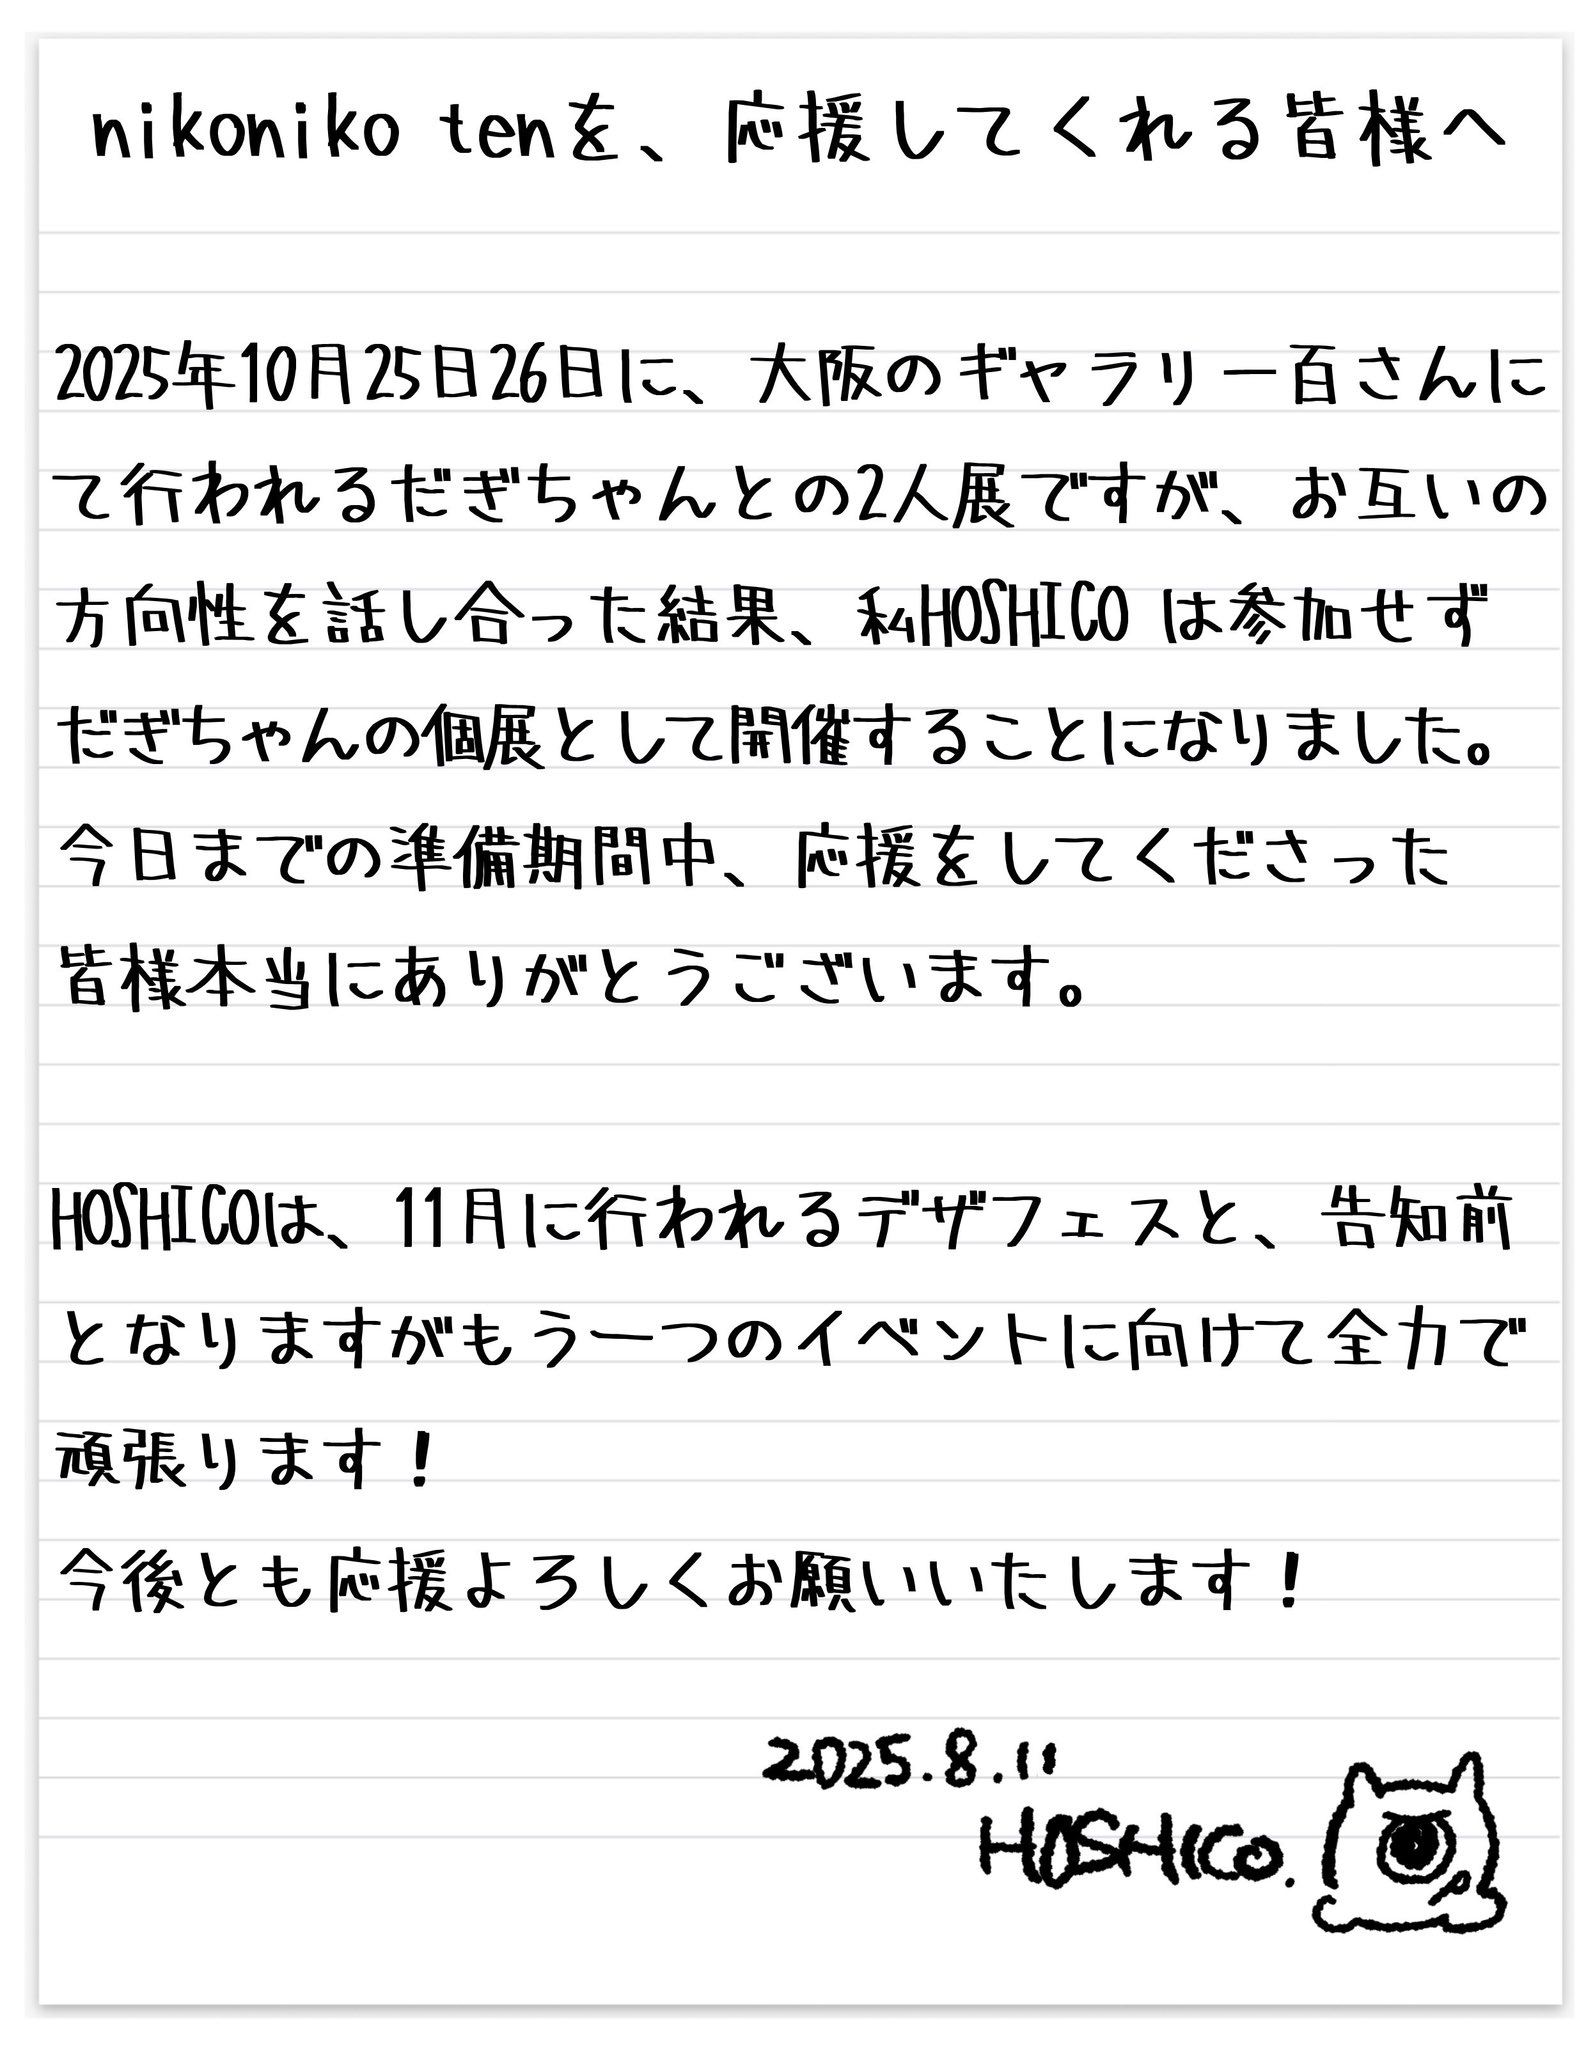 nikoniko tenを、応援してくれる皆様へ
2025年10月25日26日に、大阪のギャラリー百さんに
て行われるだぎちゃんとの2人展ですが、お互いの
方向性を話し合った結果、私HOSHICO は参加せず
だぎちゃんの個展として開催することになりました。
今日までの準備期間中、応援をしてくださった
皆様本当にありがとうございます。
HOSHICOは、11月に行われるデザフェスと、告知前
となりますがもう一つのイベントに向けて全力で
頑張ります！
今後とも応援よろしくお願いいたします！
2025.8.11
HOSHICO.